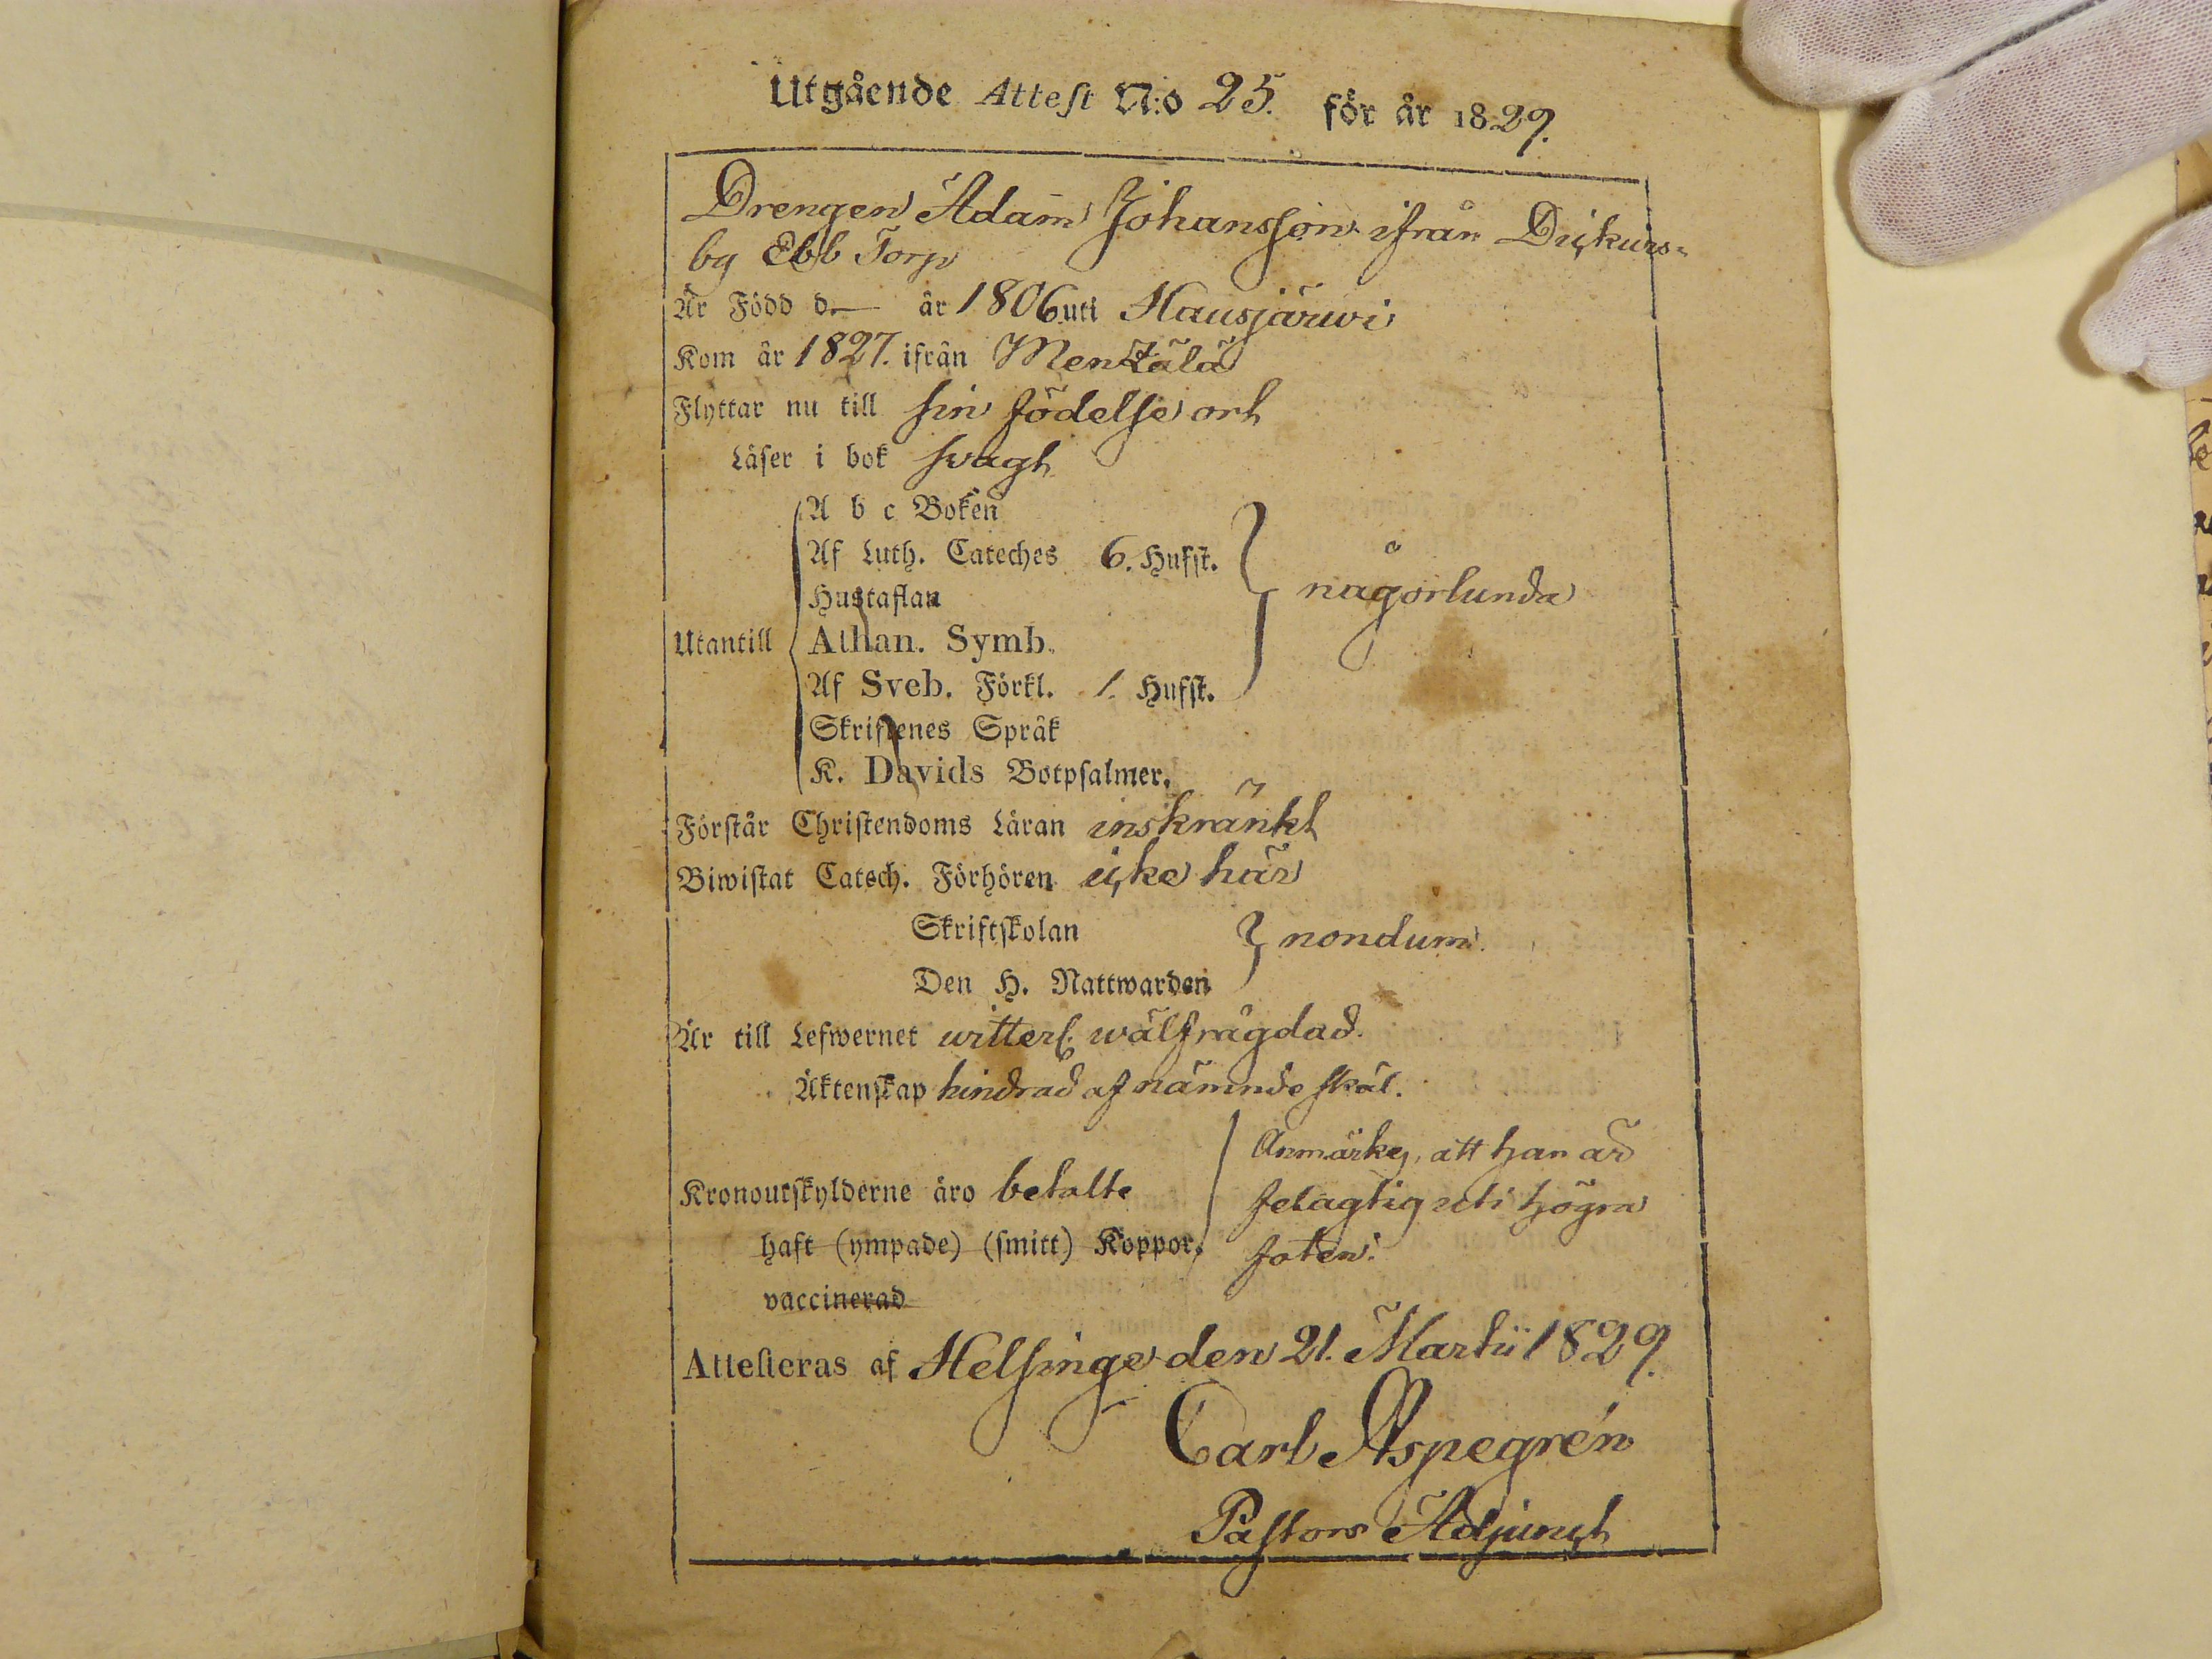 Utgående Attest N:o 25. för år 1829.
Drengen Adam Johansson ifrån Dickurs-
by Ebb Torp
Är Född d. — år 1806 uti Hausjärwi
Kom år 1827. ifrån Mentzälä
Flyttar nu till sin födelse ort
Läser i bok svagt
A b c Boken
Af Luth. Cateches 6. Hufst.
Hustaflan
någorlunda
Utantill
Athan. Symb.
Af Sveb. Förkl. 1. Hufst.
Skriftenes Språk
K. Davids Botpsalmer.
Förstår Christendoms Läran inskränkt
Biwistat Catech. Förhören icke här
Skriftskolan
nondum.
Den H. Nattwarden
Är till Lefwernet witterl. wälfrägdad.
Äktenskap hindrad af nämnde skäl.
Kronoutskylderne äro betalte
haft (ympade) (smitt) Koppor.
vaccinerad
Anmärkes, att han är
felagtig uti högra
foten.
Attesteras af Helsinge den 21. Martii 1829.
Carl Aspegrén
Pastors Adjunct